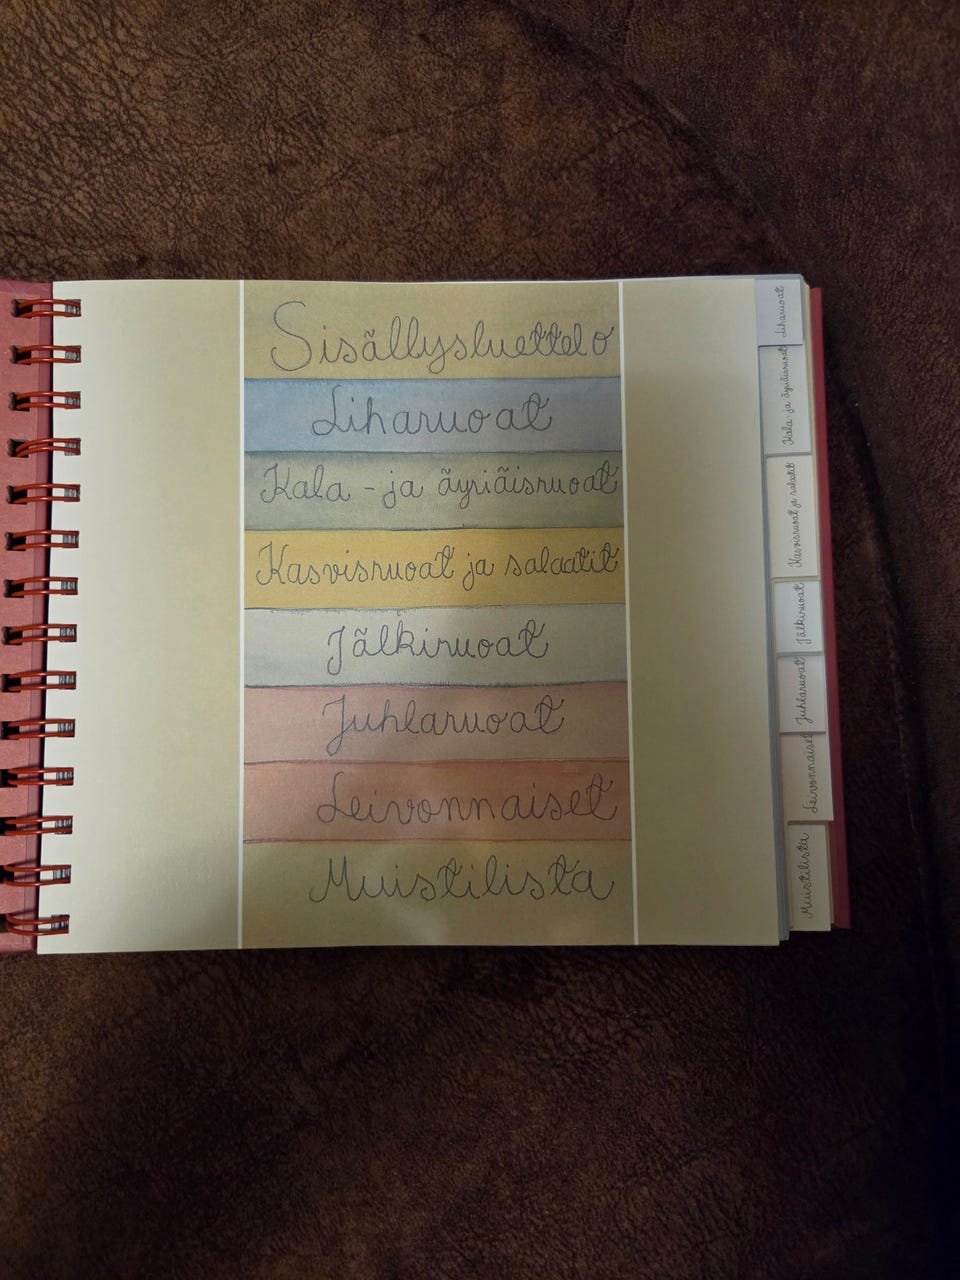 Sisällysluettelo
Liharuoat
Kala- ja äyriäisruoat
Kasvisruoat ja salaatit
Jälkiruoat
Juhlaruoat
Leivonnaiset
Muistilista
Liharuoat
Kala- ja äyriäisruoat
Kasvisruoat ja salaatit
Jälkiruoat
Juhlaruoat
Leivonnaiset
Muistilista